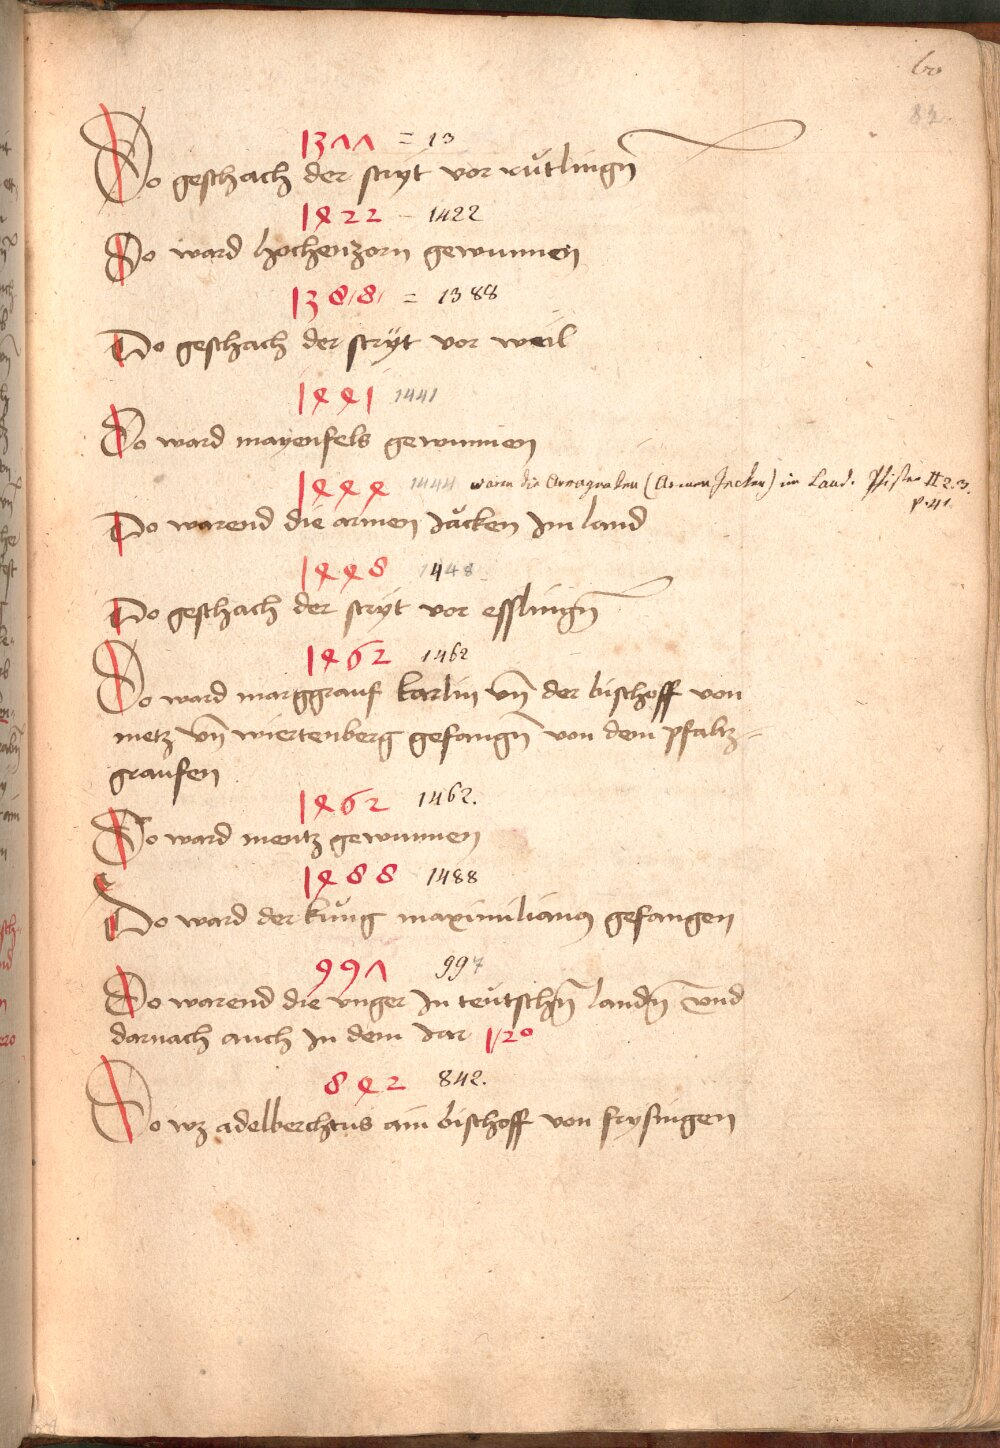 60
82
1377 = 13
Do geschach der stryt vor rútlingn̄
1422 – 1422
Do ward hochenzorn gewunnen
1388 = 1388
Do geschach der strÿt vor weil
1441 1441
Do ward mayenfels gewunnen
1444 1444 waren die Armagnaken (Armen Jecken) im Land. Pfister II 2. 3.
p. 41
Do warend die armen Jäcken Im land
1448 1448
Do geschach der strÿt vor esslingn̄
1462 1462
Do ward marggrauf karlin vn̄ der bischoff von
metz vn̄ wiertenberg gefangn̄ von dem pfaltz=
graufen
1462 1462.
Do ward mentz gewunnen
1488 1488
Do ward der kúng maximilianus gefangen
997 997
Do warend die vnger In teútschn̄ landn̄ vnd
darnach auch In dem Jar 1/20
842 842.
Do wz adelberchtus ain bischoff von frysingen